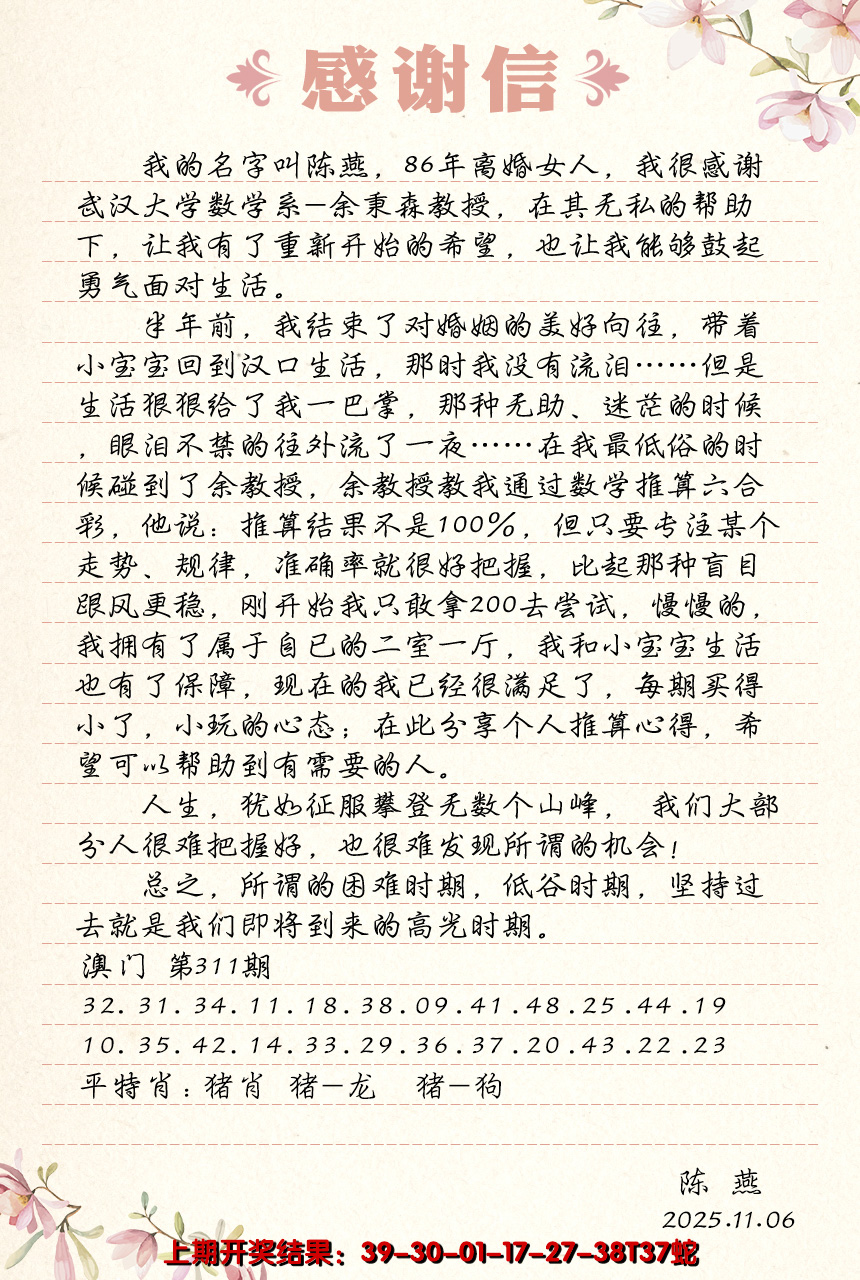 感谢信
我的名字叫陈燕，86年离婚女人，我很感谢
武汉大学数学系—余秉森教授，在其无私的帮助
下，让我有了重新开始的希望，也让我能够鼓起
勇气面对生活。
半年前，我结束了对婚姻的美好向往，带着
小宝宝回到汉口生活，那时我没有流泪……但是
生活狠狠给了我一巴掌，那种无助、迷茫的时候
，眼泪不禁的往外流了一夜……在我最低俗的时
候碰到了余教授，余教授教我通过数学推算六合
彩，他说：推算结果不是100%，但只要专注某个
走势、规律，准确率就很好把握，比起那种盲目
跟风更稳，刚开始我只敢拿200去尝试，慢慢的，
我拥有了属于自已的二室一厅，我和小宝宝生活
也有了保障，现在的我已经很满足了，每期买得
小了，小玩的心态；在此分享个人推算心得，希
望可以帮助到有需要的人。
人生，犹如征服攀登无数个山峰， 我们大部
分人很难把握好，也很难发现所谓的机会！
总之，所谓的困难时期，低谷时期，坚持过
去就是我们即将到来的高光时期。
澳门 第311期
32.31.34.11.18.38.09.41.48.25.44.19
10.35.42.14.33.29.36.37.20.43.22.23
平特肖：猪肖 猪—龙 猪—狗
陈 燕
2025.11.06
上期开奖结果：39-30-01-17-27-38T37蛇